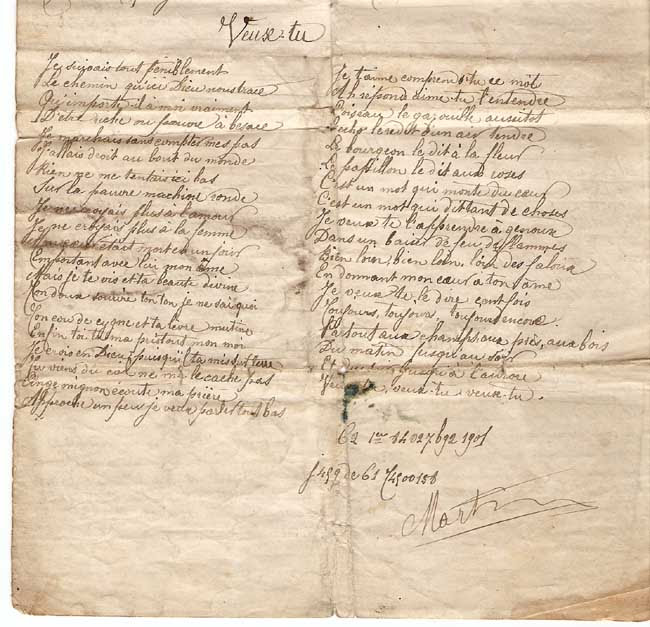 Veux-tu
Je suivais tout péniblement
Le chemin qu'ici Dieu nous trace
Qu'importe il a mri vraiment
D'être riche ou pauvre à besace
Je marchais sans compter mes pas
J'allais droit au bout du monde
Rien ne me tentais ici bas
Sur la pauvre machine ronde
Je ne croyais plus à l'amour
Je ne croyais plus à la femme
Mon cœur était mort en un jour
Emportant avec lui mon âme
Mais je te vois et ta beauté divine
Ton doux sourire ton ton je ne sais quoi
Ton cou de cygne et ta lèvre mutine
Enfin toi tu ma pris tout mon moi
Je crois en Dieu puisqu'il ta mis sur terre
Tu viens du ciel ne me le cache pas
Ange mignon écoute ma prière
Approche un peu je veux parler tout bas
Je t'aime comprend tu ce mot
Ah répond aime-tu l'entendre
L'oiseau le gazouille aussitôt
L'écho le redit d'un air tendre
Le bourgeon le dit à la fleur
Le papillon le dit aux roses
C'est un mot qui monte du cœur
C'est un mot qui dit tant de choses
Je veux te l'apprendre à genoux
Dans un baiser de feu de flammes
Bien loin, bien loin, loin des jaloux
En donnant mon cœur a ton âme
Je veux te le dire cent fois
Toujours, toujours, toujours encore.
Partout aux champs, aux près, aux bois
Du matin jusqu'au soir
Et jusqu'à l'aurore
Veux-tu, veux-tu veux-tu.
62 1er 14 027bq2 1901
f 459 de 61 74500158
Martin